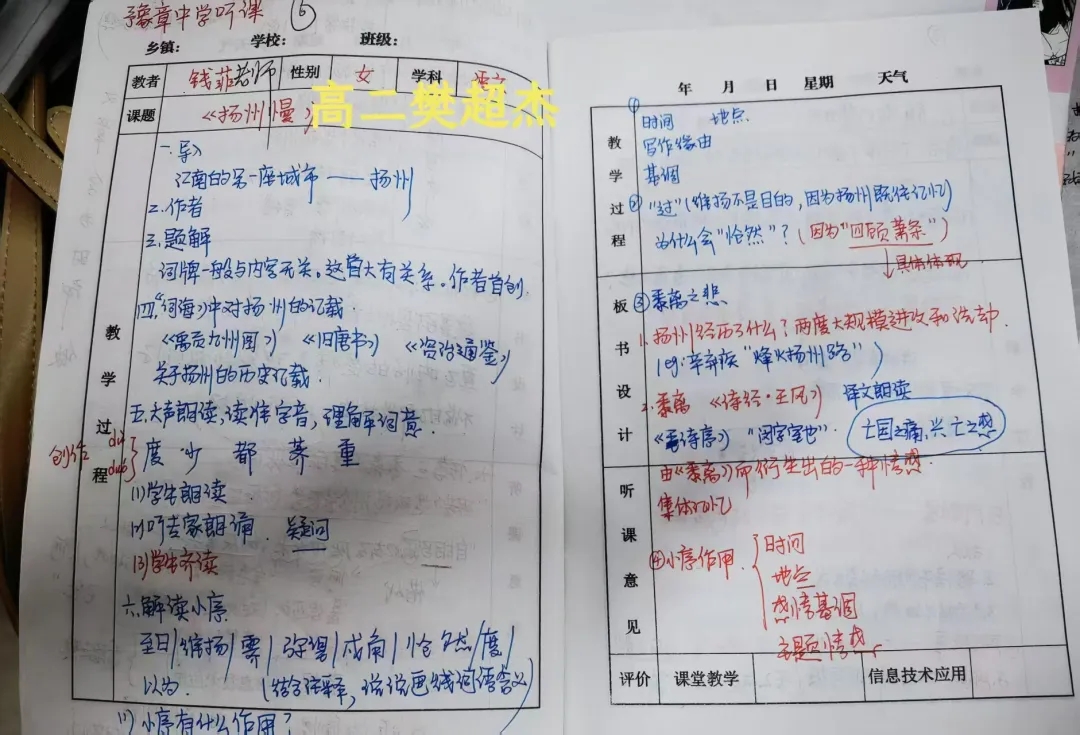 豫章中学听课 ⑥
乡镇： 学校： 班级：
教者 钱菲老师 性别 女 学科 语文
课题 《扬州慢》
高二樊超杰
教学过程
一.导入
江南的另一座城市——扬州
2.作者
三.题解
词牌一般与内容无关。这首大有关系。作者首创
四.《词海》中对扬州的记载
《禹贡九州图》 《旧唐书》 《资治通鉴》
关于扬州的历史记载.
五.大声朗读,读准字音,理解词意.
创作 du duo
度 少 都 荠 重
(1)学生朗读
(2)听专家朗诵. 疑问
(3)学生齐读
六.解读小序
至日|维扬|霁|弥望|戍角|怆然|度|
以为. (结合注释,说说画线词语含义)
(1)小序有什么作用?
年 月 日 星期 天气
教学过程
①
时间 地点
写作缘由
基调
② "过"(维扬不是目的,因为扬州既往记忆)
为什么会"怆然"?(因为"回顾萧条")
↓具体体现
板书设计
③黍离之悲
1.扬州经历了什么?两度大规模进攻和洗劫.
(eg:辛弃疾"烽火扬州路")
2.黍离 《诗经·王风》 译文朗读
《毛诗序》 "闵宗室也". 亡国之痛,兴亡之感
听课意见
由《黍离》而衍生出的一种情感.
集体记忆
④小序作用.
时间
地点
感情基调
主题情感
评价 课堂教学 信息技术应用